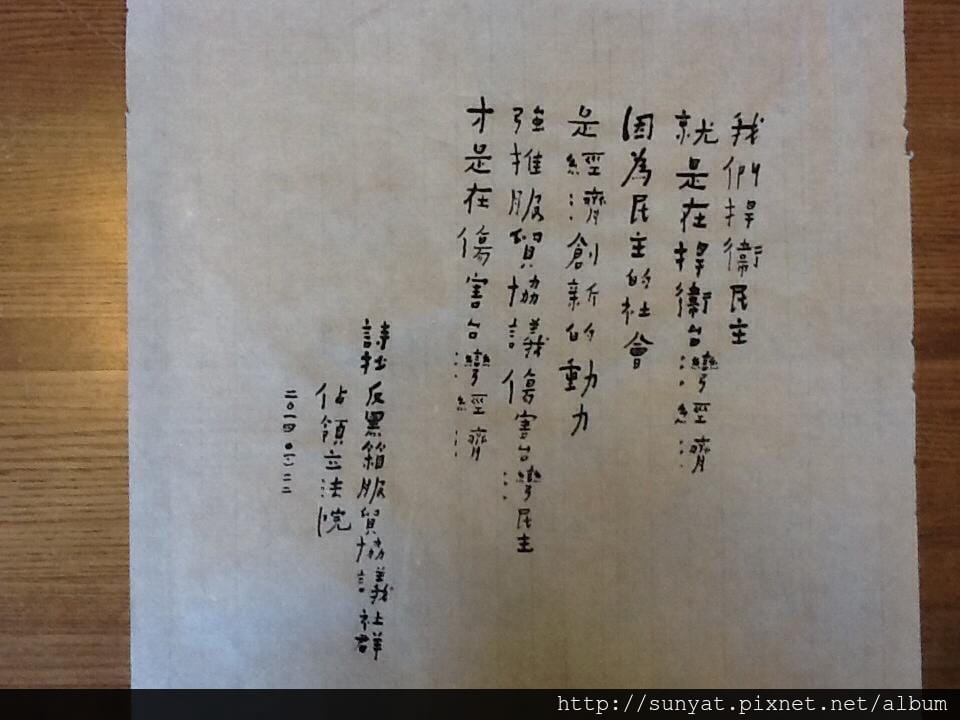 我們捍衛民主
就是在捍衛台灣經濟
因為民主的社會
是經濟創新的動力
強推服貿協議傷害台灣民主
才是在傷害台灣經濟
詩抆反黑箱服貿協議社群
佔領立法院
二〇一四〇三二二
http://sunyat.pixnet.net/album